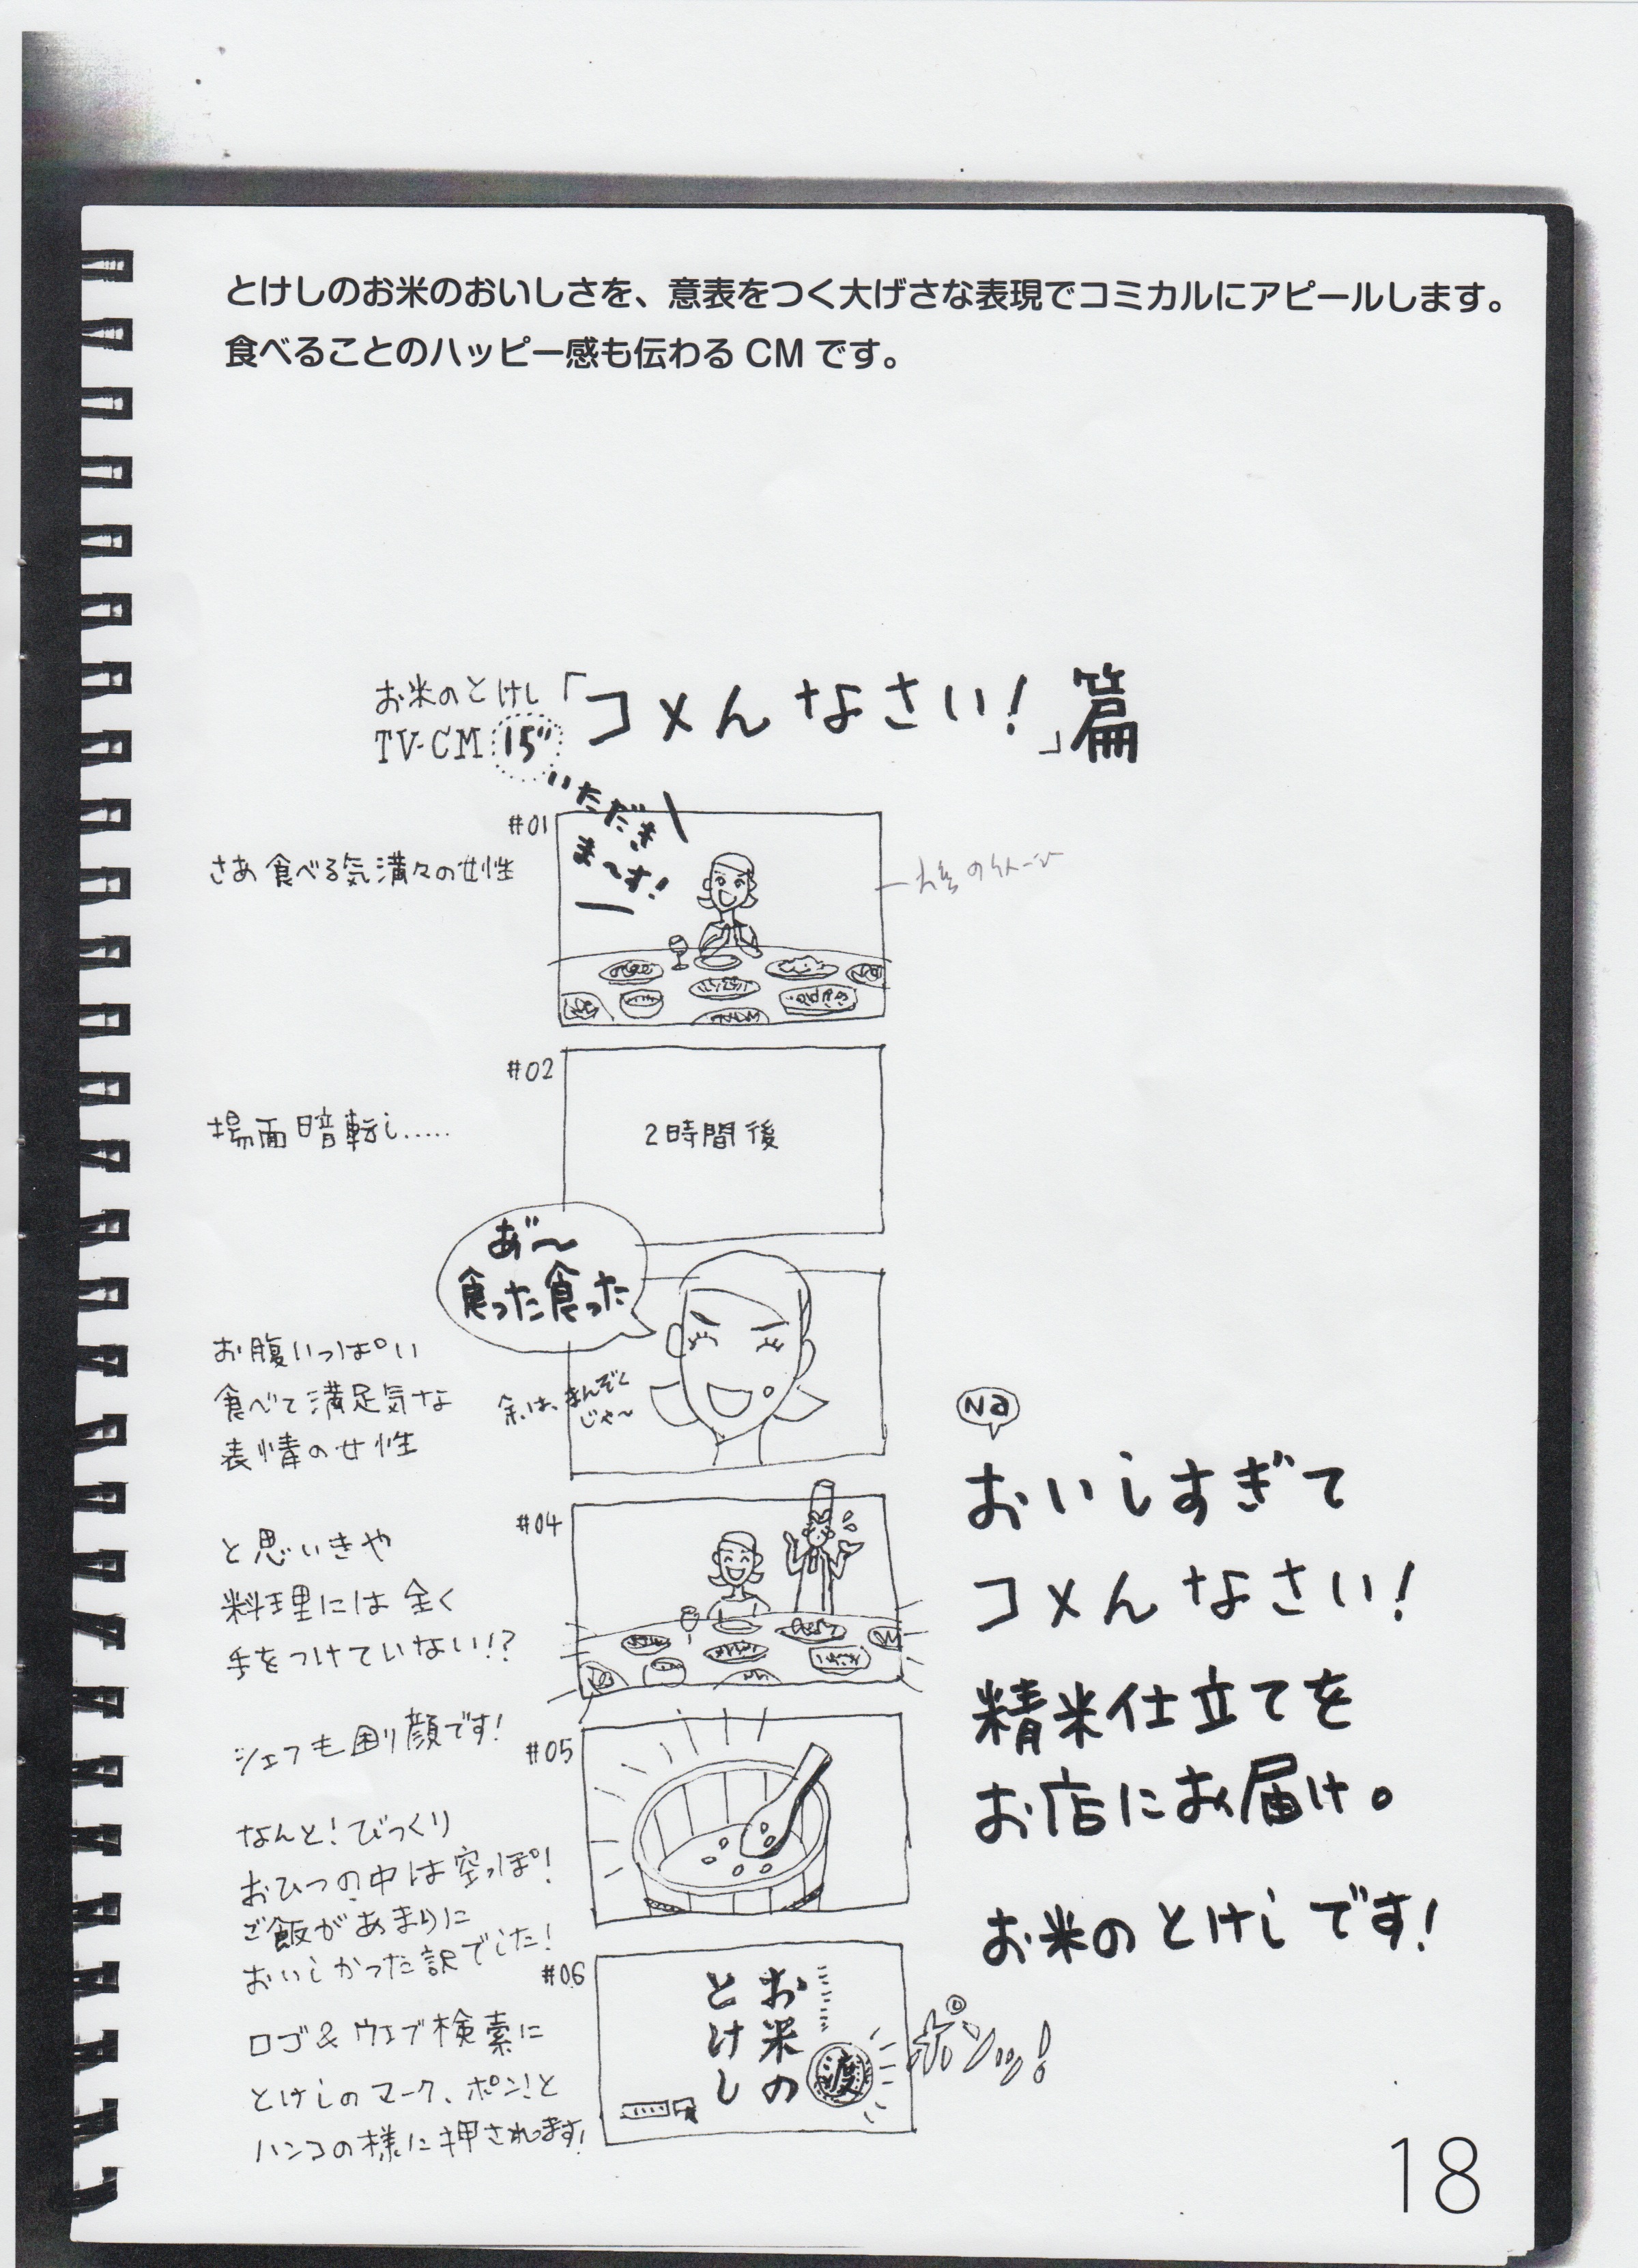 とけしのお米のおいしさを、意表をつく大げさな表現でコミカルにアピールします。
食べることのハッピー感も伝わる CM です。
お米のとけし
TV-CM 15"
「コメんなさい!」篇
#01
さあ食べる気満々の女性
いただき
ま〜す!
#02
場面暗転し.....
2時間後
あ゛〜
食った食った
お腹いっぱい
食べて満足気な
表情の女性
余は、まんぞく
じゃ〜
#04
と思いきや
料理には全く
手をつけていない!?
シェフも困り顔です!
#05
なんと!びっくり
おひつの中は空っぽ!
ご飯があまりに
おいしかった訳でした!
#06
ロゴ&ウェブ検索に
とけしのマーク、ポン!と
ハンコの様に押されます!
お米の
とけし
渡
ポンッ!
Na
おいしすぎて
コメんなさい!
精米仕立てを
お店にお届け。
お米のとけしです!
18